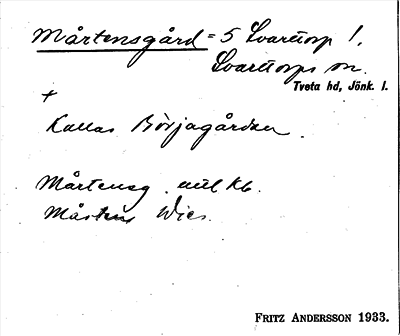 Mårtensgård = 5 Svarttorp 1.
Svarttorps sn.
Tveta hd, Jönk. l.
+
Kallas Börjagården
Mårtensg. enl kb.
Mårtens Wies.
FRITZ ANDERSSON 1933.